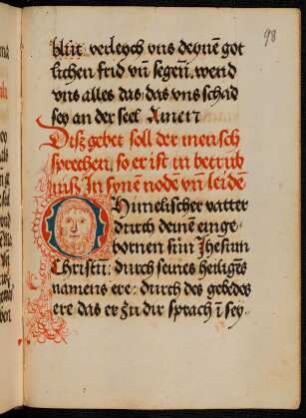 98
blüt verleych vns deynē got
lichen frid vn̄ segen. wend
vns alles das, das vns schad
sey an der seel Amen
Disz gebet soll der mensch
sprechen, so er ist in betrüb
nusz In synē nodē vn̄ leidē
O Himelischer vatter
durch deinē einge-
bornen sun Jhesum
Christū: durch seines heiligēs
namens ere: durch des gebedes
ere das er zu dir sprach ī sey-